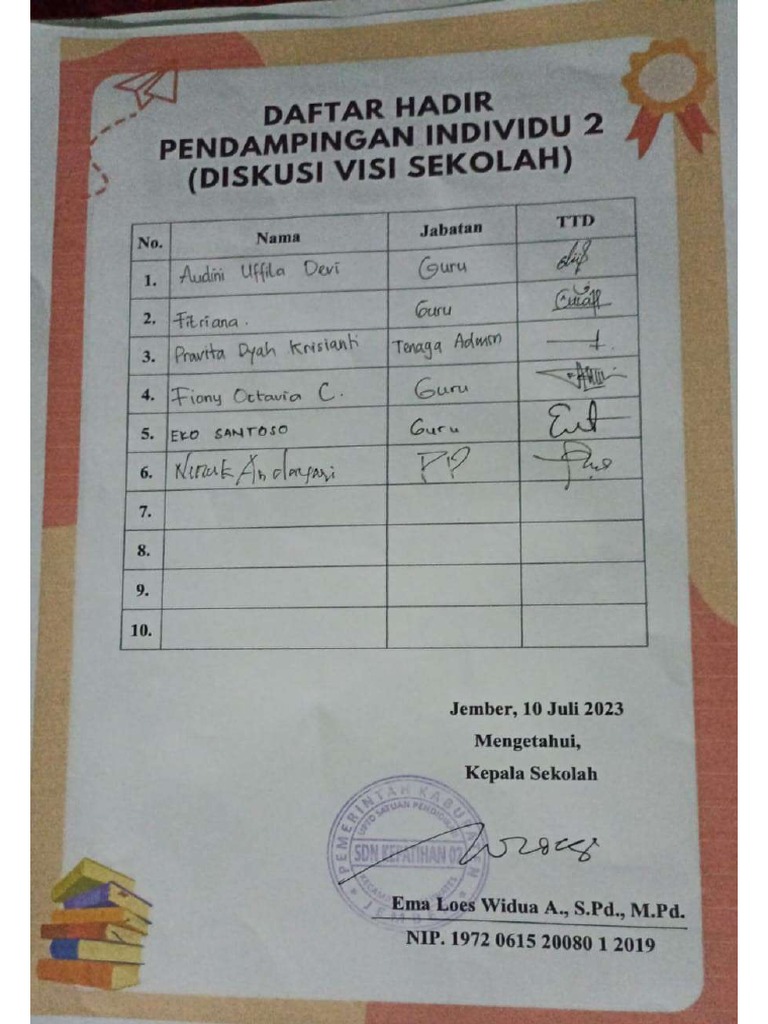 DAFTAR HADIR
PENDAMPINGAN INDIVIDU 2
(DISKUSI VISI SEKOLAH)
No. Nama Jabatan TTD
1. Audini Uffila Devi Guru
2. Fitriana. Guru
3. Pravita Dyah Krisianti Tenaga Admin
4. Fiony Octavia C. Guru
5. EKO SANTOSO Guru
6. PP
7.
8.
9.
10.
Jember, 10 Juli 2023
Mengetahui,
Kepala Sekolah
PEMERINTAH KABUPATEN
UPTD SATUAN PENDIDIKAN
SDN KEPATIHAN 02
JEMBER
Ema Loes Widua A., S.Pd., M.Pd.
NIP. 1972 0615 20080 1 2019